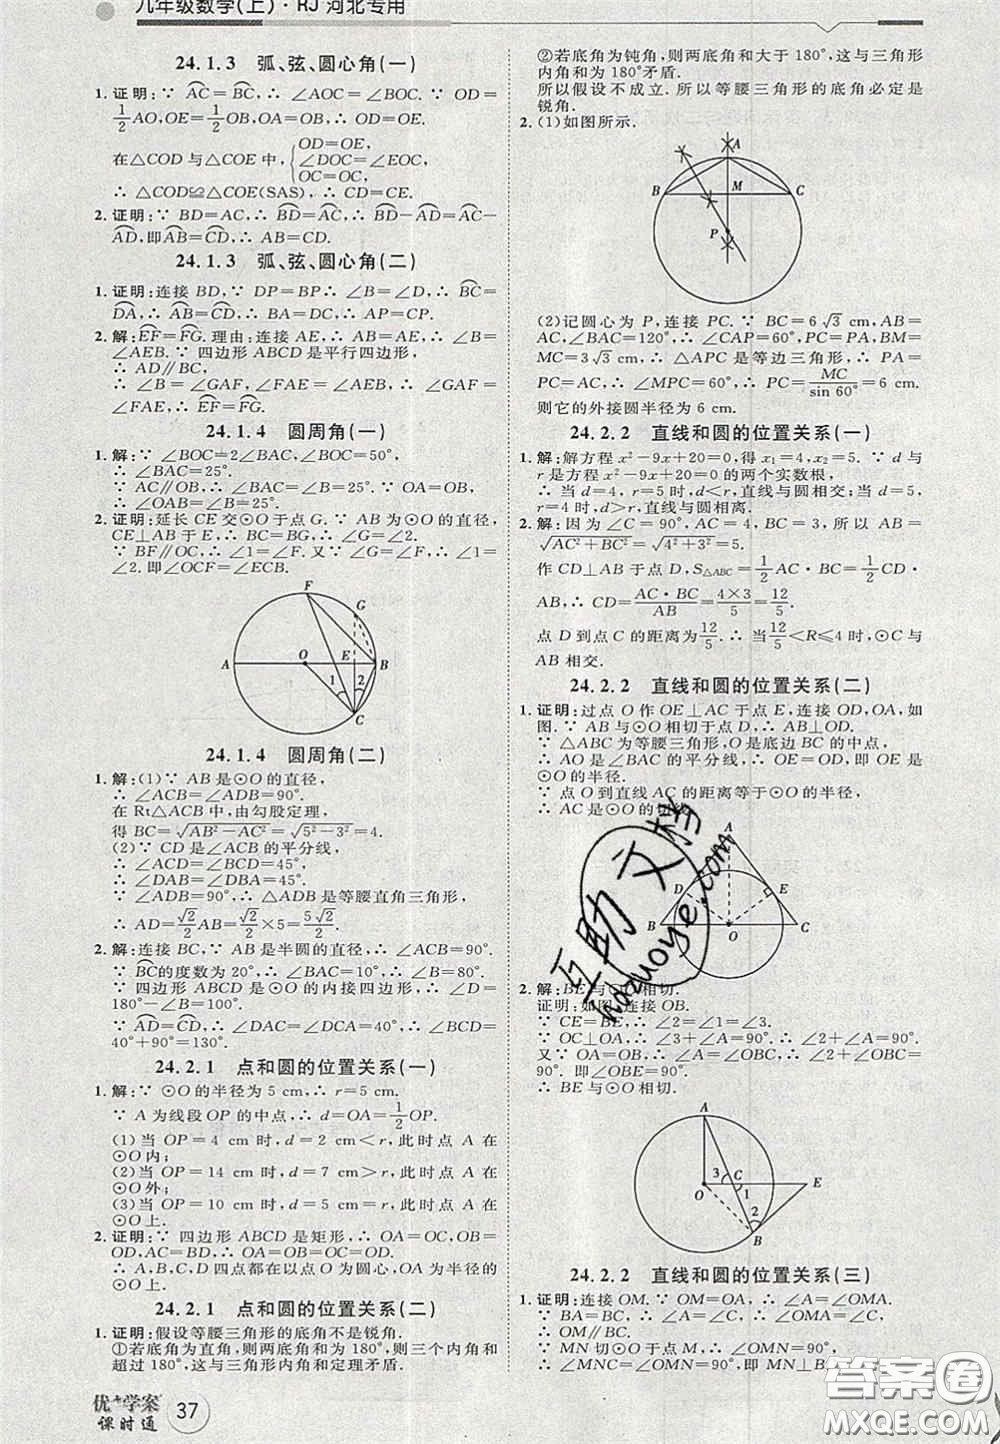 九年级数学(上)·RJ 河北专用
24.1.3 弧、弦、圆心角(一)
1. 证明:∵ A͡C=B͡C,∴ ∠AOC=∠BOC. ∵ OD=
1/2AO,OE=1/2OB,OA=OB,∴ OD=OE.
在△COD与△COE中,{OD=OE, ∠DOC=∠EOC, OC=OC.
∴ △COD≌△COE(SAS),∴ CD=CE.
2. 证明:∵ BD=AC,∴ B͡D=A͡C,∴ B͡D-A͡D=A͡C-
A͡D,即A͡B=C͡D,∴ AB=CD.
24.1.3 弧、弦、圆心角(二)
1. 证明:连接 BD,∵ DP=BP,∴ ∠B=∠D,∴ B͡C=
D͡A,∴ A͡B=C͡D,∴ BA=DC,∴ AP=CP.
2. 解:E͡F=F͡G. 理由:连接 AE,∴ AB=AE,∴ ∠B=
∠AEB. ∵ 四边形 ABCD 是平行四边形,
∴ AD∥BC,
∴ ∠B=∠GAF,∠FAE=∠AEB,∴ ∠GAF=
∠FAE,∴ E͡F=F͡G.
24.1.4 圆周角(一)
1. 解:∵ ∠BOC=2∠BAC,∠BOC=50°,
∴ ∠BAC=25°.
∵ AC∥OB,∴ ∠BAC=∠B=25°. ∵ OA=OB,
∴ ∠OAB=∠B=25°.
2. 证明:延长 CE 交⊙O 于点 G. ∵ AB 为⊙O 的直径,
CE⊥AB 于 E,∴ BC=BG,∴ ∠BCG=∠BFC.
∵ BF∥OC,∴ ∠1=∠F. 又∵ ∠BCG=∠F=∠1=
∠2. 即∠OCF=∠ECB.
F
G
A
O
E
B
1
2
C
24.1.4 圆周角(二)
1. 解:(1)∵ AB 是⊙O 的直径,
∴ ∠ACB=∠ADB=90°.
在 Rt△ACB 中,由勾股定理,
得 BC=√(AB²-AC²)=√(5²-3²)=4.
(2)∵ CD 是∠ACB 的平分线,
∴ ∠ACD=∠BCD=45°,
∴ ∠DAB=∠DBA=45°.
∴ △ADB 是等腰直角三角形,
∴ AD=√2/2AB=√2/2×5=5√2/2.
2. 解:连接 BC,∵ AB 是半圆的直径,∴ ∠ACB=90°.
∵ B͡C的度数为 20°,∴ ∠BAC=20°,∴ ∠B=80°.
∵ 四边形 ABCD 是⊙O 的内接四边形,∴ ∠D=
180°-∠B=100°.
∵ A͡D=C͡D,∴ ∠DAC=∠DCA=40°,∴ ∠BCD=
40°+90°=130°.
24.2.1 点和圆的位置关系(一)
1. 解:∵ ⊙O 的半径为 5 cm,∴ r=5 cm.
∵ A 为线段 OP 的中点,∴ d=OA=1/2OP.
(1)当 OP=4 cm 时,d=2 cm<r,此时点 A 在
⊙O内;
(2)当 OP=14 cm 时,d=7 cm>r,此时点 A 在
⊙O外;
(3)当 OP=10 cm 时,d=5 cm=r,此时点 A 在
⊙O上.
2. 证明:∵ 四边形 ABCD 是矩形,∴ OA=OC,OB=
OD,AC=BD,∴ OA=OB=OC=OD,
∴ A,B,C,D 四点都在以点 O 为圆心,OA 为半径的
圆上.
24.2.1 点和圆的位置关系(二)
1. 证明:假设等腰三角形的底角不是锐角.
①若底角为直角,则两底角和为 180°,则三个内角和
超过 180°,这与三角形内角和定理矛盾.
②若底角为钝角,则两底角和大于 180°,这与三角形
内角和为 180°矛盾.
所以假设不成立. 所以等腰三角形的底角必定是
锐角.
2. (1)如图所示.
A
B
M
C
P
(2)记圆心为 P,连接 PC. ∵ BC=6√3 cm,AB=
AC,∠BAC=120°,∴ ∠CAP=60°,PC=PA,BM=
MC=3√3 cm,∴ △APC 是等边三角形,∴ PA=
PC=AC,∴ ∠MPC=60°,∴ PC=MC/sin 60°=6 cm.
则它的外接圆半径为 6 cm.
24.2.2 直线和圆的位置关系(一)
1. 解:解方程 x²-9x+20=0,得 x₁=4,x₂=5. ∵ d 与
r 是方程 x²-9x+20=0 的两个实数根,
∴ 当 d=4,r=5 时,d<r,直线与圆相交;当 d=5,
r=4 时,d>r,直线与圆相离.
2. 解:因为∠C=90°,AC=4,BC=3,所以 AB=
√(AC²+BC²)=√(4²+3²)=5.
作 CD⊥AB 于点 D,S△ABC=1/2AC·BC=1/2CD·
AB,∴ CD=AC·BC/AB=4×3/5=12/5.
点 D 到点 C 的距离为12/5. ∴ 当12/5<R≤4 时,⊙C 与
AB 相交.
24.2.2 直线和圆的位置关系(二)
1. 证明:过点 O 作 OE⊥AC 于点 E,连接 OD,OA,如
图. ∵ AB 与⊙O 相切于点 D,∴ AB⊥OD.
∵ △ABC 为等腰三角形,O 是底边 BC 的中点,
∴ AO 是∠BAC 的平分线,∴ OE=OD,即 OE 是
⊙O 的半径.
∵ 点 O 到直线 AC 的距离等于⊙O 的半径,
∴ AC 是⊙O 的切线.
A
D
E
B
O
C
2. 解:BE 与⊙O 相切.
证明:如图,连接 OB.
∵ CE=BE,∴ ∠2=∠1=∠3.
∵ OC⊥OA,∴ ∠3+∠A=90°,∴ ∠2+∠A=90°.
又∵ OA=OB,∴ ∠A=∠OBC,∴ ∠2+∠OBC=
90°,即∠OBE=90°,∴ OB⊥BE,
∴ BE 与⊙O 相切.
A
3
C
1
E
O
2
B
24.2.2 直线和圆的位置关系(三)
1. 证明:连接 OM. ∵ OM=OA,∴ ∠A=∠OMA.
∵ BA=BC,∴ ∠A=∠C,∴ ∠OMA=∠C,
∴ OM∥BC.
∵ MN 与⊙O 切于点 M,∴ ∠OMN=90°,
∴ ∠MNC=∠OMN=90°,即 MN⊥BC.
互助文档
hazuoye.com
优+学案
课时通
37
答案圈
MXQE.COM